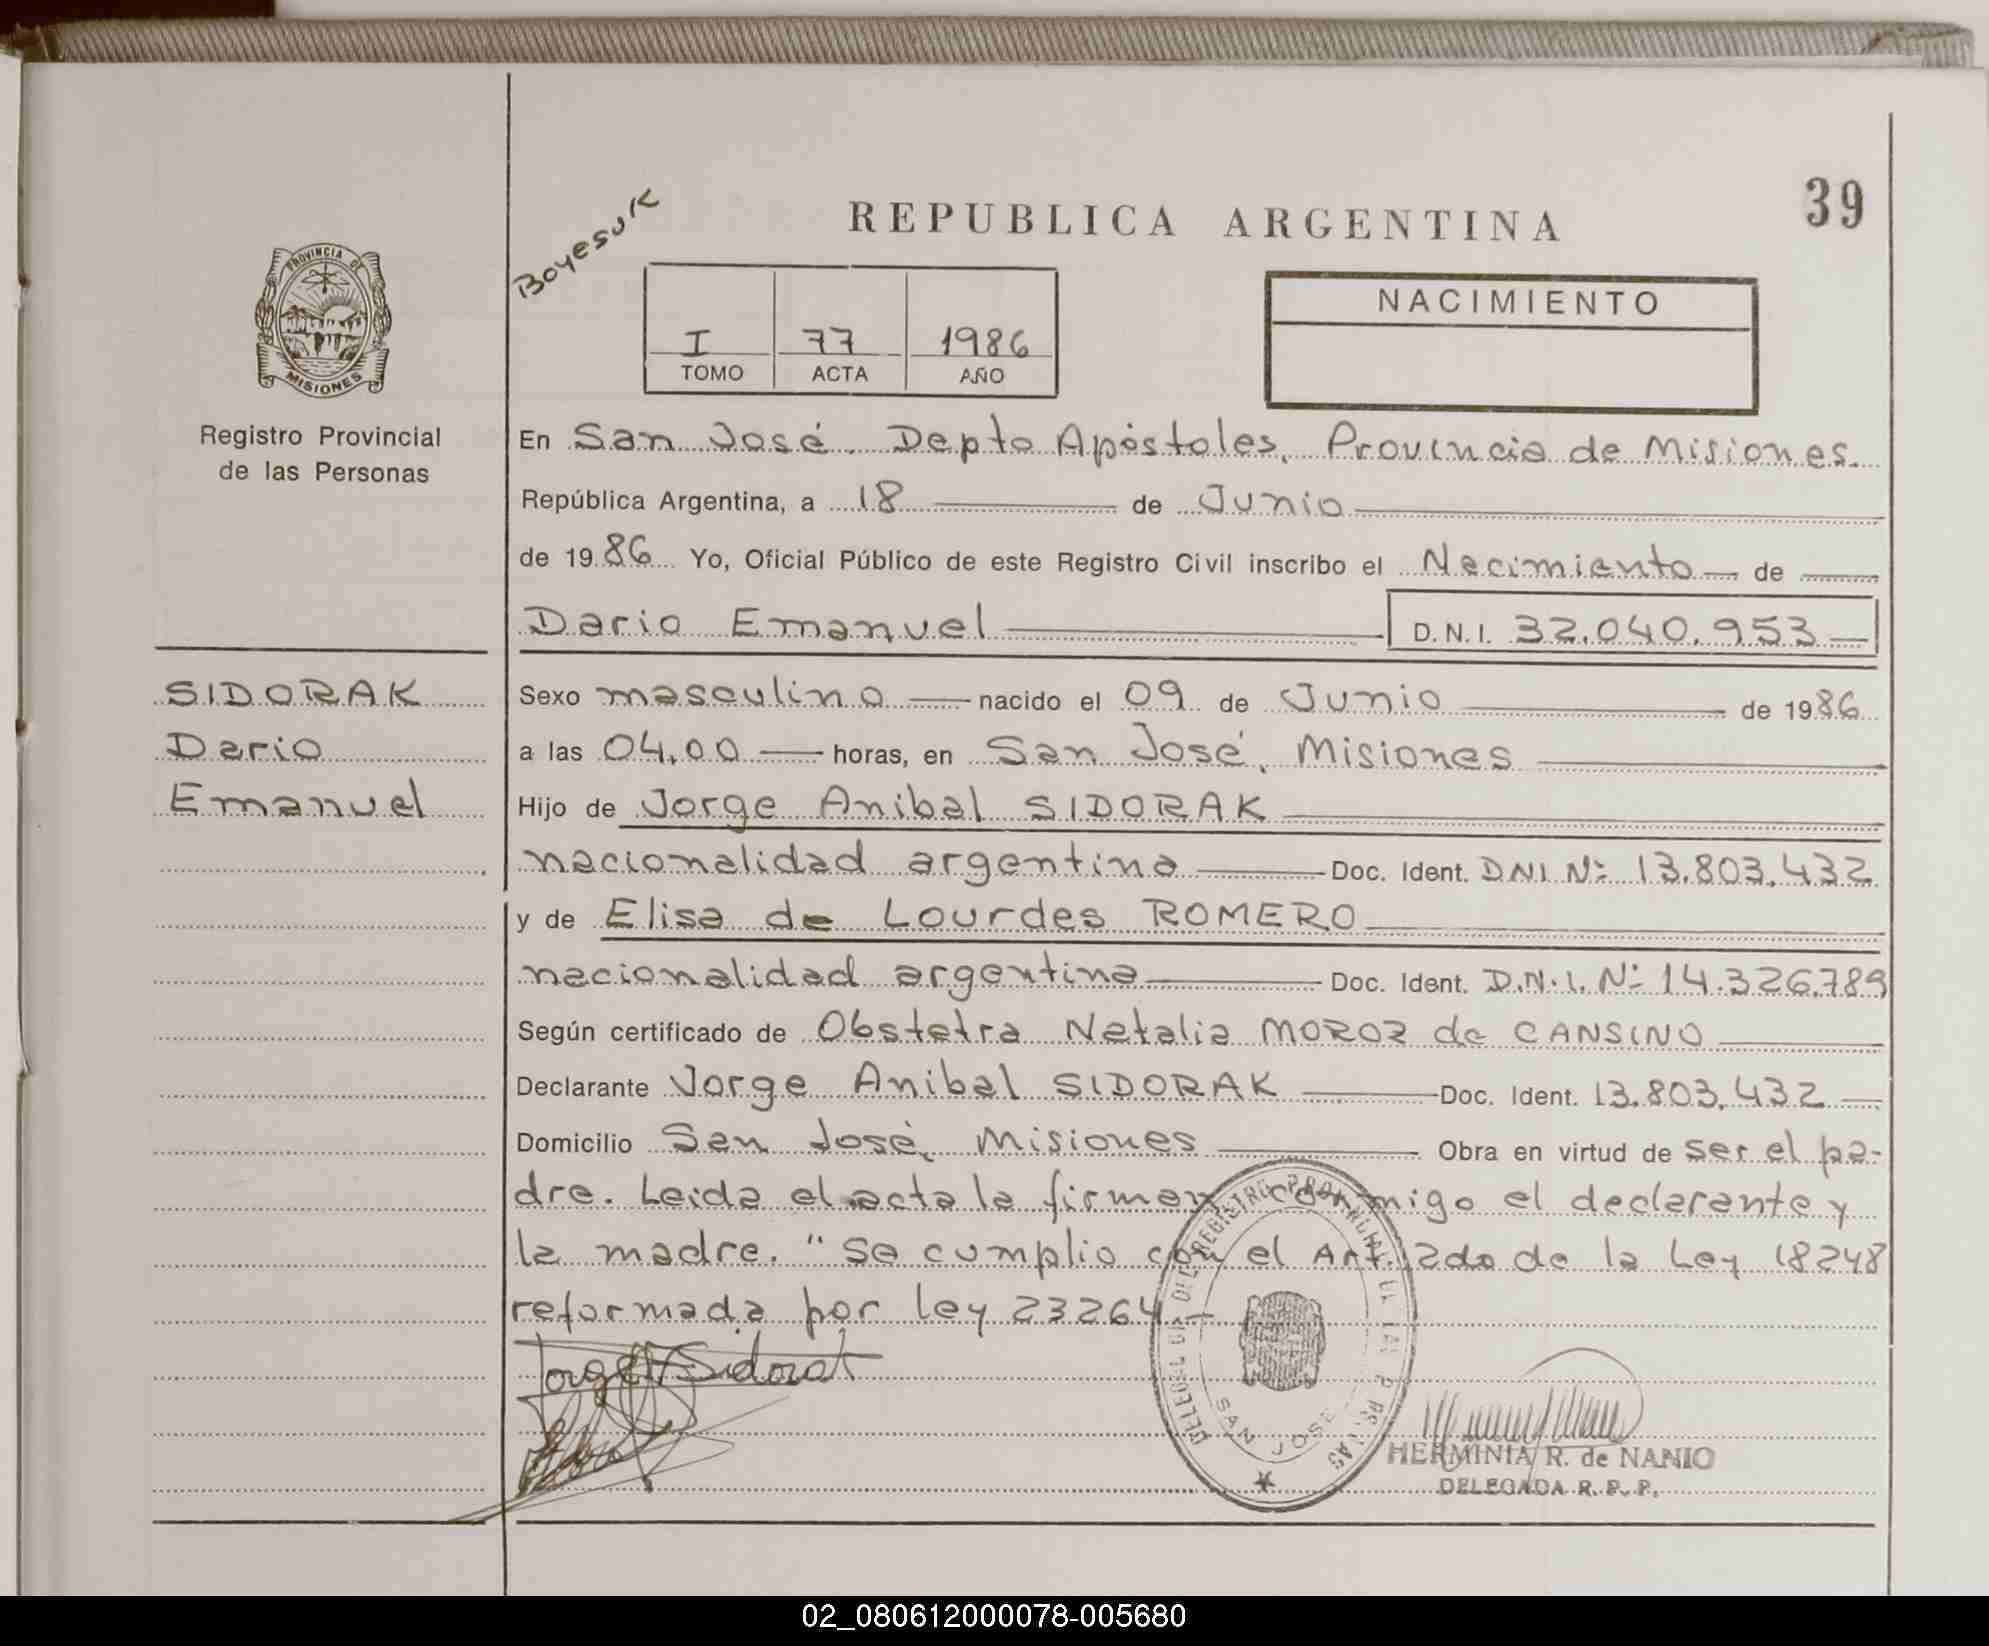 39
Boyesuk
REPUBLICA ARGENTINA
PROVINCIA DE
MISIONES
Registro Provincial
de las Personas
I 77 1986
TOMO ACTA AÑO
NACIMIENTO
En San José. Depto Apóstoles, Provincia de Misiones.
República Argentina, a 18 de Junio
de 1986 Yo, Oficial Público de este Registro Civil inscribo el Nacimiento de
Dario Emanuel D.N.I. 32.040.953
SIDORAK
Dario
Emanuel
Sexo masculino nacido el 09 de Junio de 1986
a las 04,00 horas, en San José, Misiones
Hijo de Jorge Anibal SIDORAK
nacionalidad argentina Doc. Ident. DNI Nº 13.803.432
y de Elisa de Lourdes ROMERO
nacionalidad argentina Doc. Ident. D.N.I. Nº 14.326.789
Según certificado de Obstetra Natalia MOROZ de CANSINO
Declarante Jorge Anibal SIDORAK Doc. Ident. 13.803.432
Domicilio San José, Misiones Obra en virtud de ser el pa-
dre. Leida el acta la firman conmigo el declarante y
la madre. "Se cumplio con el Art. 2do de la Ley 18248
reformada por ley 23264.-
Jorge A Sidorak
DELEGACION DEL REGISTRO PROVINCIAL DE LAS PERSONAS
SAN JOSE
HERMINIA R. de NANIO
DELEGADA R. P. P.
02_080612000078-005680